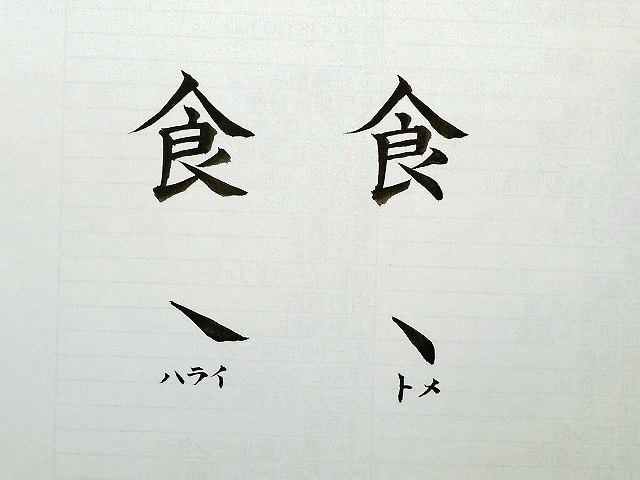 食 食
ハライ トメ